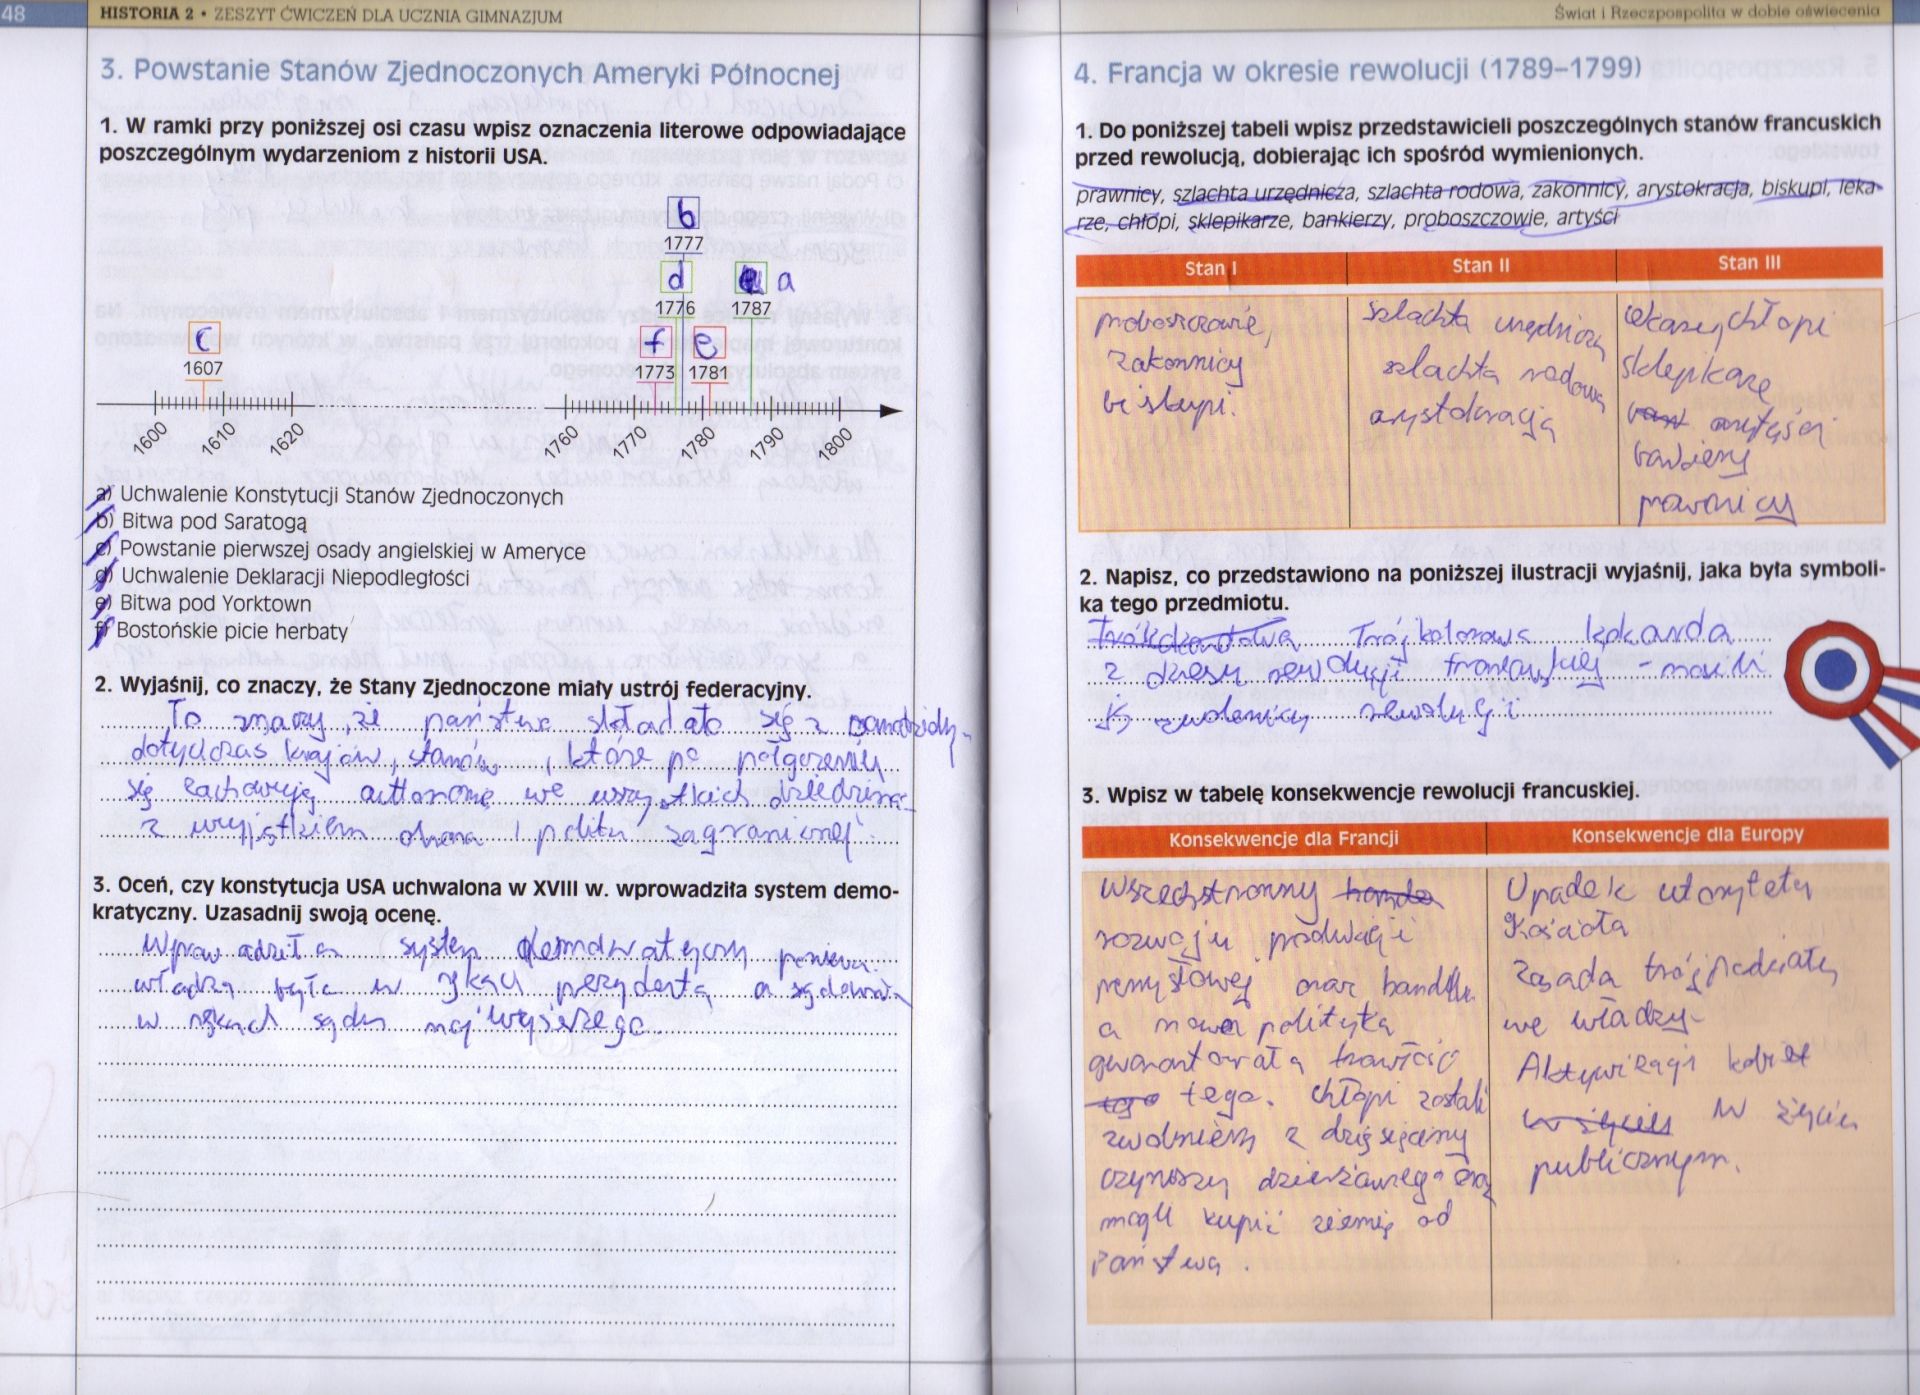 48
HISTORIA 2 • ZESZYT ĆWICZEŃ DLA UCZNIA GIMNAZJUM
3. Powstanie Stanów Zjednoczonych Ameryki Północnej
1. W ramki przy poniższej osi czasu wpisz oznaczenia literowe odpowiadające
poszczególnym wydarzeniom z historii USA.
b
1777
d
a
1776
1787
c
f
e
1607
1773
1781
1600
1610
1620
1760
1770
1780
1790
1800
a) Uchwalenie Konstytucji Stanów Zjednoczonych
b) Bitwa pod Saratogą
c) Powstanie pierwszej osady angielskiej w Ameryce
d) Uchwalenie Deklaracji Niepodległości
e) Bitwa pod Yorktown
f) Bostońskie picie herbaty
2. Wyjaśnij, co znaczy, że Stany Zjednoczone miały ustrój federacyjny.
To znaczy, że państwo składało się z
dotychczas krajów, stanów, które po połączeniu
się zachowują we wszystkich
z wyjątkiem i zagranicznej.
3. Oceń, czy konstytucja USA uchwalona w XVIII w. wprowadziła system demo-
kratyczny. Uzasadnij swoją ocenę.
system
władza była w prezydenta a
w rękach sądu najwyższego.
Świat i Rzeczpospolita w dobie oświecenia
4. Francja w okresie rewolucji (1789–1799)
1. Do poniższej tabeli wpisz przedstawicieli poszczególnych stanów francuskich
przed rewolucją, dobierając ich spośród wymienionych.
prawnicy, szlachta urzędnicza, szlachta rodowa, zakonnicy, arystokracja, biskupi, leka-
rze, chłopi, sklepikarze, bankierzy, proboszczowie, artyści
Stan I
Stan II
Stan III
proboszczowie,
zakonnicy
biskupi.
szlachta urzędnicza
szlachta rodowa
arystokracja
chłopi
prawnicy
2. Napisz, co przedstawiono na poniższej ilustracji wyjaśnij, jaka była symboli-
ka tego przedmiotu.
Trójkolorowa kokarda
z okresu rewolucji francuskiej - nosili
ją zwolennicy rewolucji
3. Wpisz w tabelę konsekwencje rewolucji francuskiej.
Konsekwencje dla Francji
Konsekwencje dla Europy
Wszechstronny
rozwoju produkcji
oraz
a nowa polityka
tego. Chłopi zostali
z dziesięciny
czynszu dzierżawnego oraz
mogli kupić ziemię od
Państwa.
Upadek
Kościoła
zasada
władzy
kobiet
w życiu
publicznym.